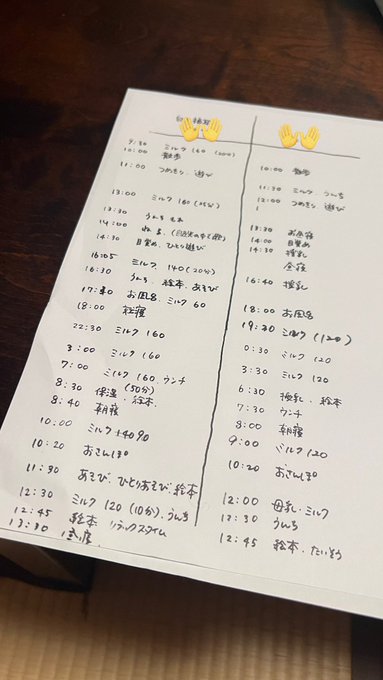 9:30 ミルク 160 (20分)
10:00 散歩
11:00 つめきり 遊び
13:00 ミルク 160 (15分)
13:30 うんちもれ
14:00
14:30 目覚め、ひとり遊び
16:05 ミルク 140 (20分)
16:30 うんち、絵本、あそび
17:30 お風呂、ミルク 60
18:00 就寝
22:30 ミルク 160
3:00 ミルク 160
7:00 ミルク 160 ウンチ
8:30 保湿、絵本 (50分)
8:40 朝寝
10:00 ミルク
10:20 おさんぽ
11:30 あそび、ひとりあそび、絵本
12:30 ミルク 120 (10分)、うんち
12:45 絵本 リラックスタイム
13:30
10:00 散歩
11:30 ミルク うんち
12:00 つめきり 遊び
13:30 お昼寝
14:00 目覚め
14:30 授乳
昼寝
16:40 授乳
18:00 お風呂
19:30 ミルク (120)
0:30 ミルク 120
3:30 ミルク 120
6:30 授乳、絵本
7:30 ウンチ
8:00 朝寝
9:00 ミルク 120
10:20 おさんぽ
12:00 母乳、ミルク
12:30 うんち
12:45 絵本、たいそう